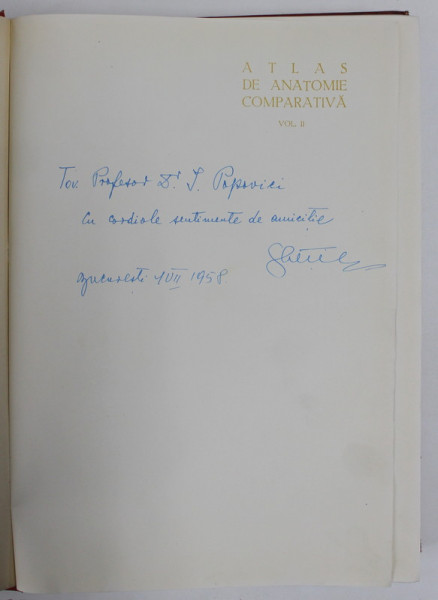 ATLAS
DE ANATOMIE
COMPARATIVĂ
VOL. II
Tov. Profesor Dr I. Popovici
Cu cordiale sentimente de amiciție
București 1 VII 1958